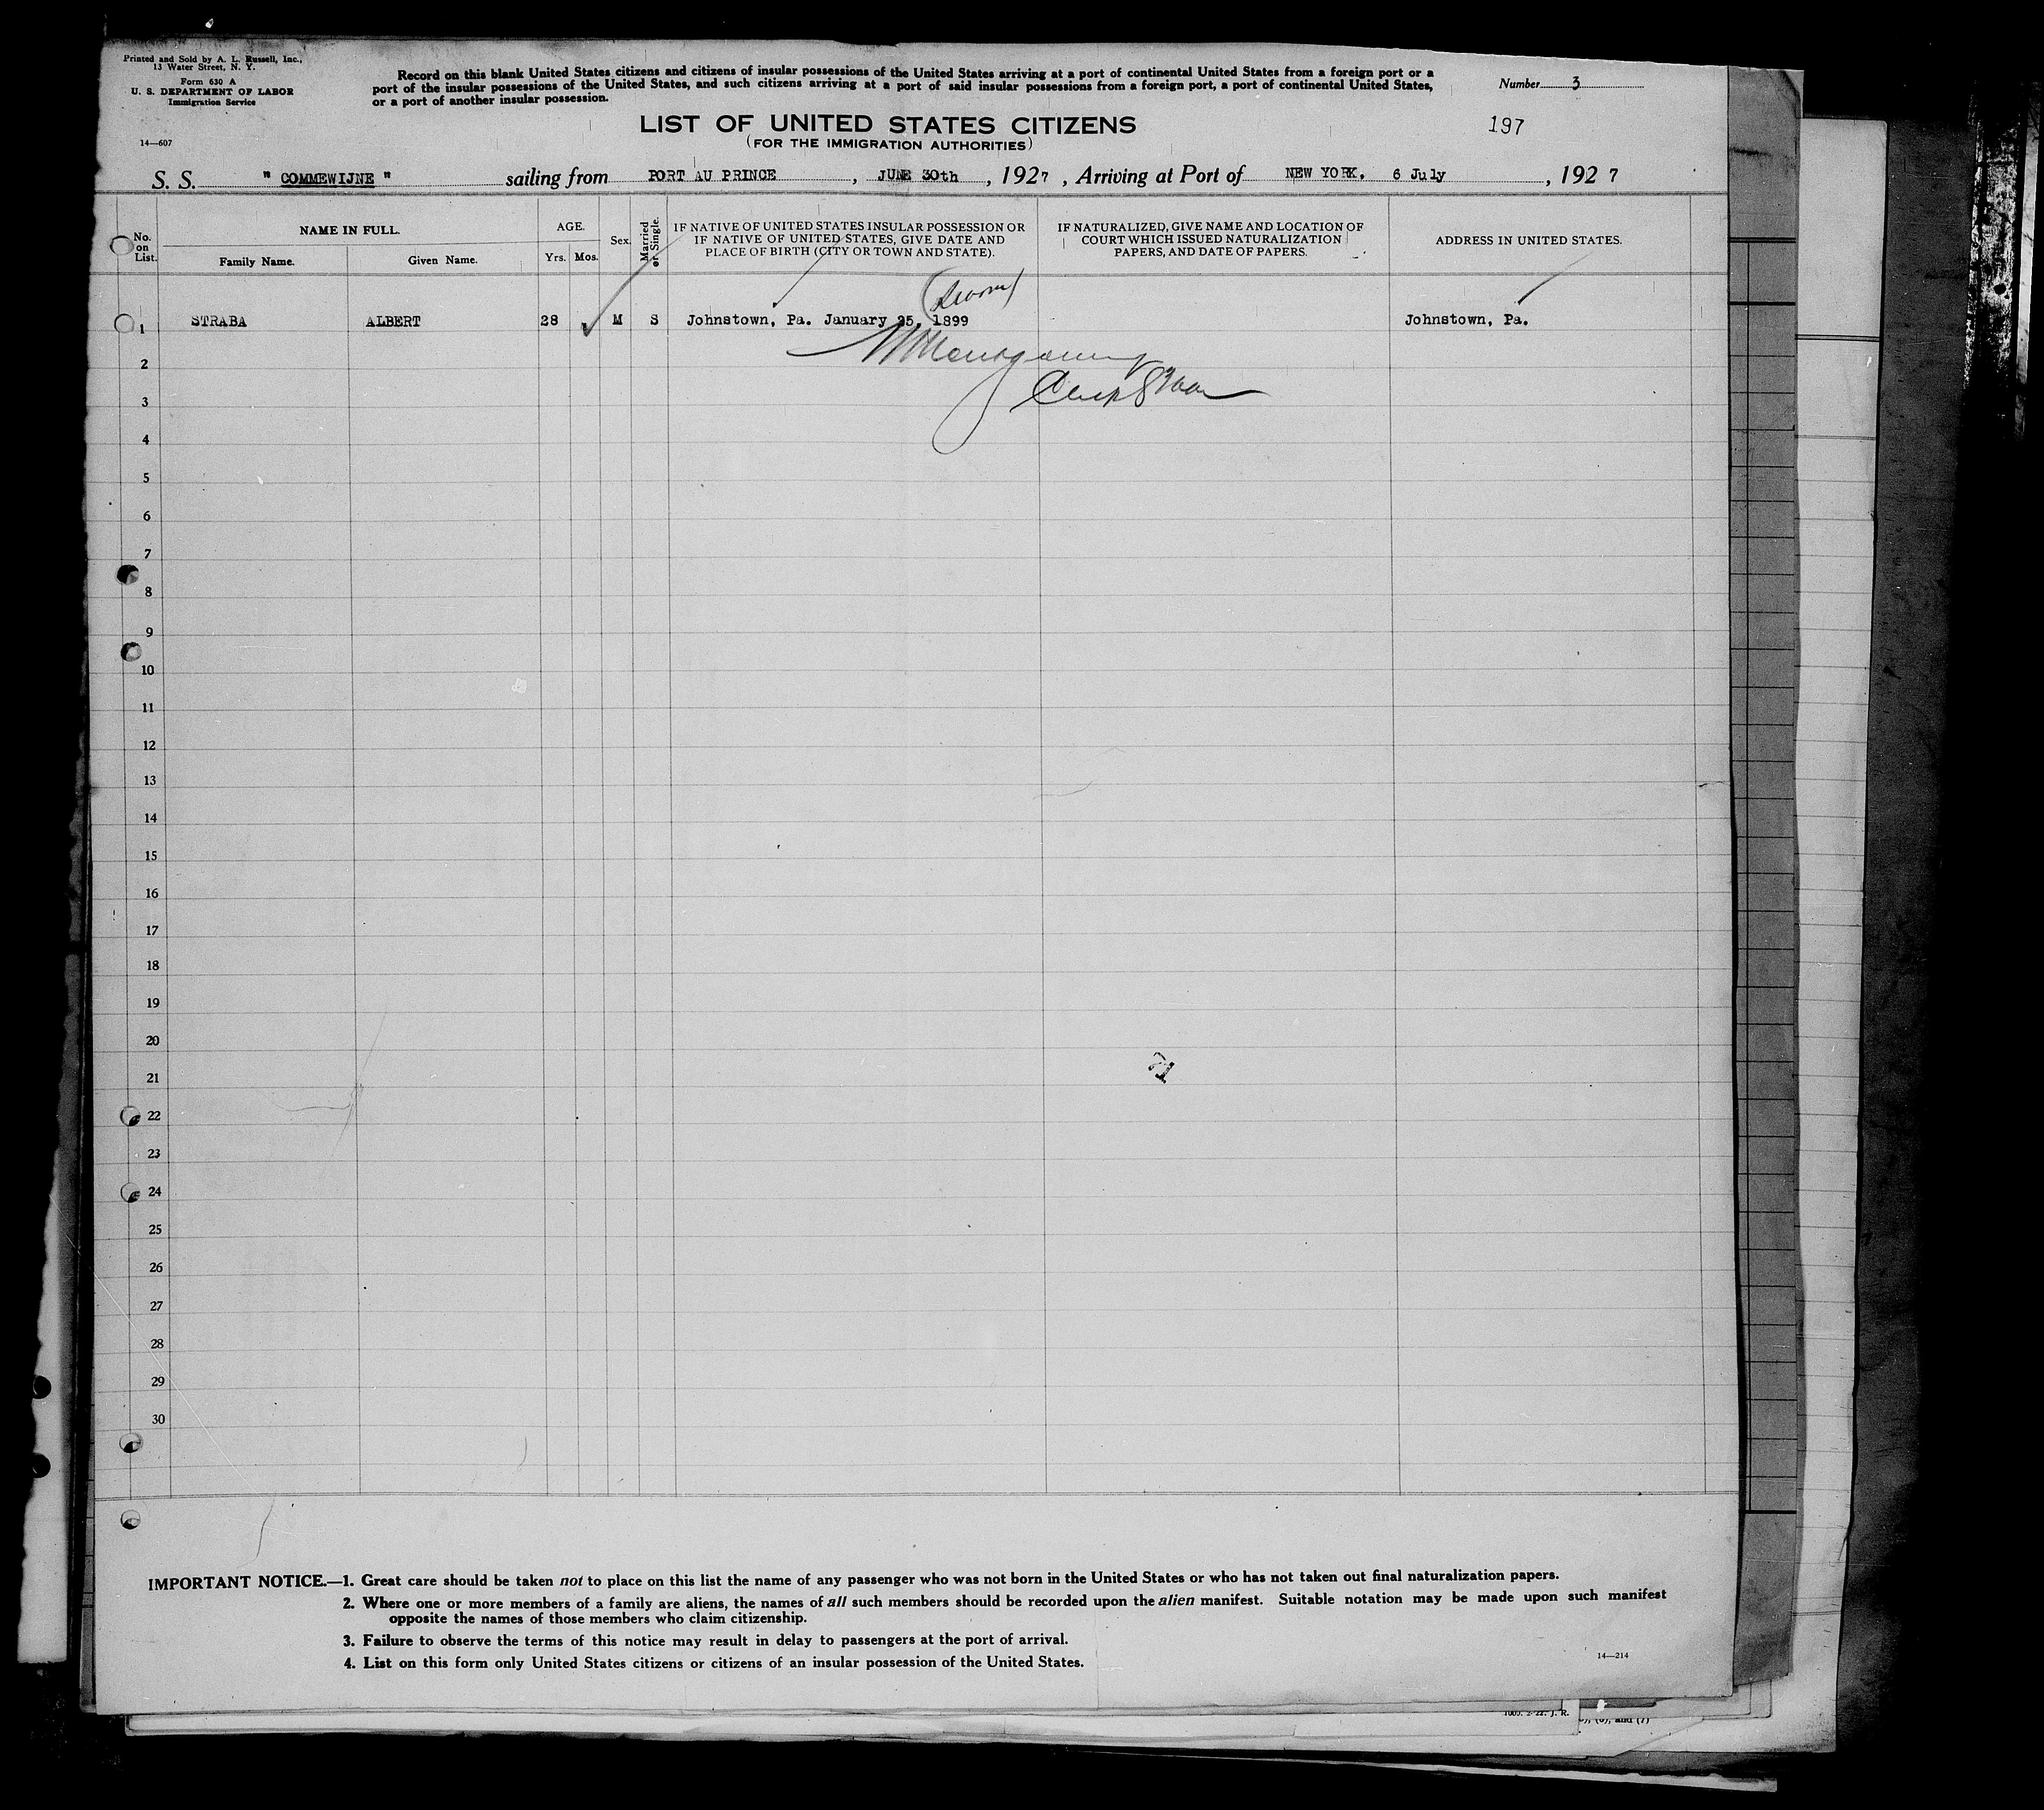 Printed and Sold by A. L. Russell, Inc.,
13 Water Street, N. Y.
Form 630 A
U. S. DEPARTMENT OF LABOR
Immigration Service
14—607
Record on this blank United States citizens and citizens of insular possessions of the United States arriving at a port of continental United States from a foreign port or a
port of the insular possessions of the United States, and such citizens arriving at a port of said insular possessions from a foreign port, a port of continental United States,
or a port of another insular possession.
Number 3
197
LIST OF UNITED STATES CITIZENS
(FOR THE IMMIGRATION AUTHORITIES)
S. S. " COMMEWIJNE " sailing from PORT AU PRINCE , JUNE 30th , 1927 , Arriving at Port of NEW YORK, 6 July , 1927
No. on List.
NAME IN FULL.
Family Name.
Given Name.
AGE.
Yrs. Mos.
Sex.
Married or Single.
IF NATIVE OF UNITED STATES INSULAR POSSESSION OR
IF NATIVE OF UNITED STATES, GIVE DATE AND
PLACE OF BIRTH (CITY OR TOWN AND STATE).
IF NATURALIZED, GIVE NAME AND LOCATION OF
COURT WHICH ISSUED NATURALIZATION
PAPERS, AND DATE OF PAPERS.
ADDRESS IN UNITED STATES.
1 STRABA ALBERT 28 M S Johnstown, Pa. January 25, 1899 Johnstown, Pa.
2
3
4
5
6
7
8
9
10
11
12
13
14
15
16
17
18
19
20
21
22
23
24
25
26
27
28
29
30
IMPORTANT NOTICE.—1. Great care should be taken not to place on this list the name of any passenger who was not born in the United States or who has not taken out final naturalization papers.
2. Where one or more members of a family are aliens, the names of all such members should be recorded upon the alien manifest. Suitable notation may be made upon such manifest
opposite the names of those members who claim citizenship.
3. Failure to observe the terms of this notice may result in delay to passengers at the port of arrival.
4. List on this form only United States citizens or citizens of an insular possession of the United States.
14—214